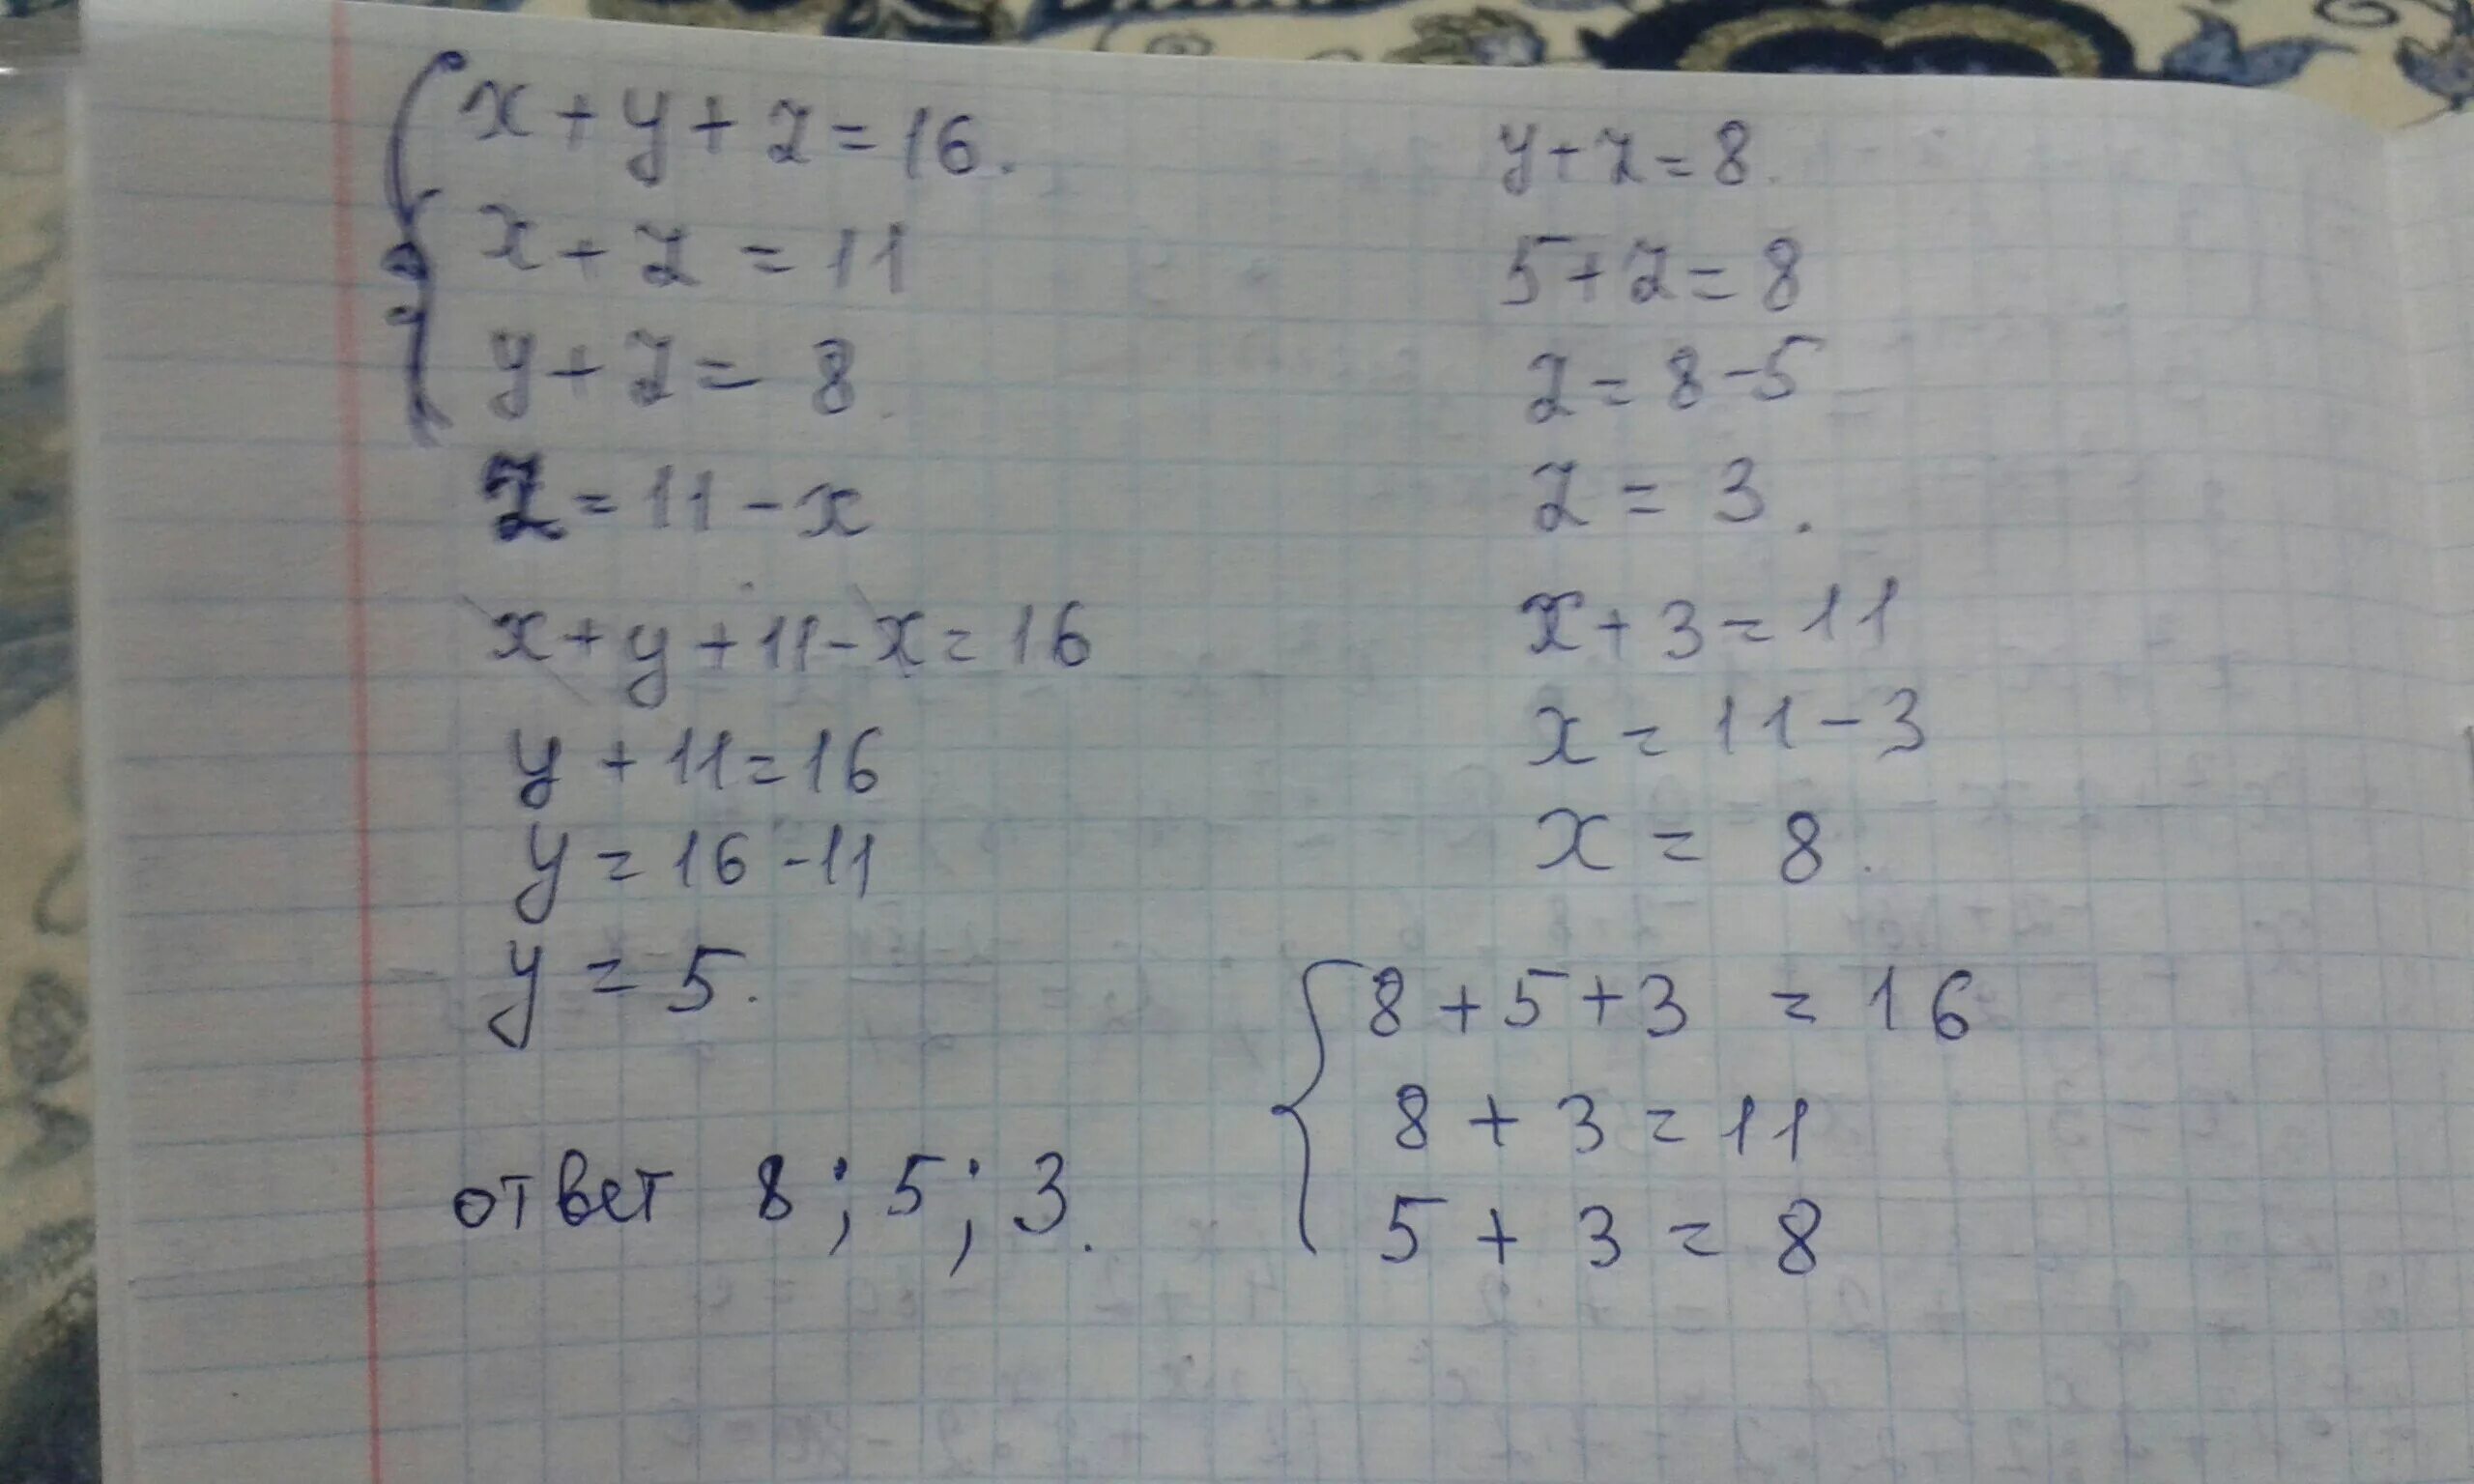 x + y + z = 16.
x + z = 11
y + z = 8.
z = 11 - x
x + y + 11 - x = 16
y + 11 = 16
y = 16 - 11
y = 5.
ответ 8; 5; 3.
y + z = 8.
5 + z = 8
z = 8 - 5
z = 3.
x + 3 = 11
x = 11 - 3
x = 8.
8 + 5 + 3 = 16
8 + 3 = 11
5 + 3 = 8